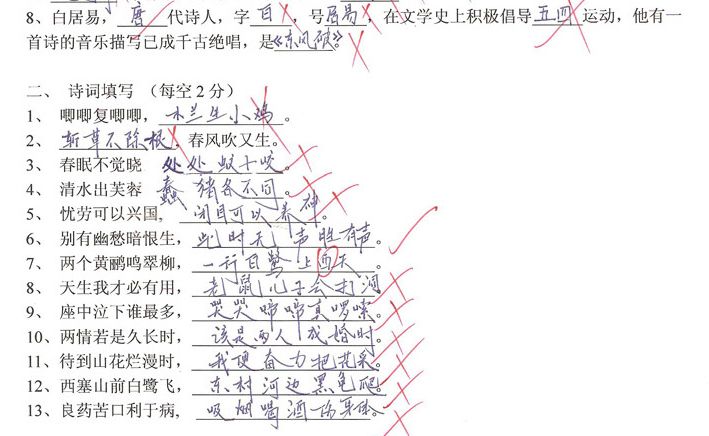 8、白居易，唐代诗人，字白，号居易，在文学史上积极倡导五四运动，他有一
首诗的音乐描写已成千古绝唱，是《东风破》。
二、诗词填写（每空2分）
1、唧唧复唧唧，木兰生小鸡。
2、斩草不除根，春风吹又生。
3、春眠不觉晓 处处蚊子咬。
4、清水出芙蓉 蠢猪各不同。
5、忧劳可以兴国，闭目可以养神。
6、别有幽愁暗恨生，此时无声胜有声。
7、两个黄鹂鸣翠柳，一行白鹭上西天。
8、天生我才必有用，老鼠儿子会打洞。
9、座中泣下谁最多，哭哭啼啼真啰嗦。
10、两情若是久长时，该是两人成婚时。
11、待到山花烂漫时，我便奋力把花采。
12、西塞山前白鹭飞，东村河边黑龟爬。
13、良药苦口利于病，吸烟喝酒伤身体。